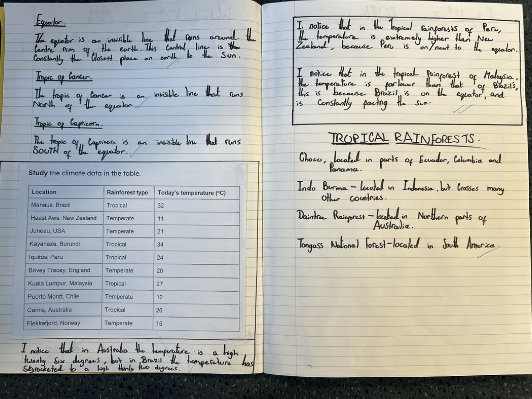 Equator
The equator is an invisible line that runs around the
centre rim of the earth. This central line is the
constantly the closest place on earth to the Sun.
Tropic of Cancer
The tropic of Cancer is an invisible line that runs
North of the equator.
Tropic of Capricorn.
The tropic of Capricorn is an invisible line that runs
SOUTH of the equator.
Study the climate data in the table.
Location Rainforest type Today's temperature (°C)
Manaus, Brazil Tropical 32
Haast Awa, New Zealand Temperate 11
Juneau, USA Temperate 21
Kayanaza, Burundi Tropical 34
Iquitos, Peru Tropical 24
Bovey Tracey, England Temperate 20
Kuala Lumpur, Malaysia Tropical 27
Puerto Montt, Chile Temperate 12
Cairns, Australia Tropical 26
Flekkefjord, Norway Temperate 15
I notice that in Australia the temperature is a high
twenty six degrees, but in Brazil the temperature has
skyrocketed to a high thirty two degrees.
I notice that in the Tropical Rainforests of Peru,
the temperature is extremely higher than New
Zealand, because Peru is on/next to the equator.
I notice that in the tropical rainforest of Malaysia,
the temperature is far lower than that of Brazil's,
this is because Brazil is on the equator, and
is constantly facing the sun.
TROPICAL RAINFORESTS.
Choco, located in parts of Ecuador, Columbia and
Panama.
Indo Burma - located in Indonesia, but crosses many
other countries.
Daintree Rainforest - located in Northern parts of
Australia.
Tongass National Forest - located in South America.